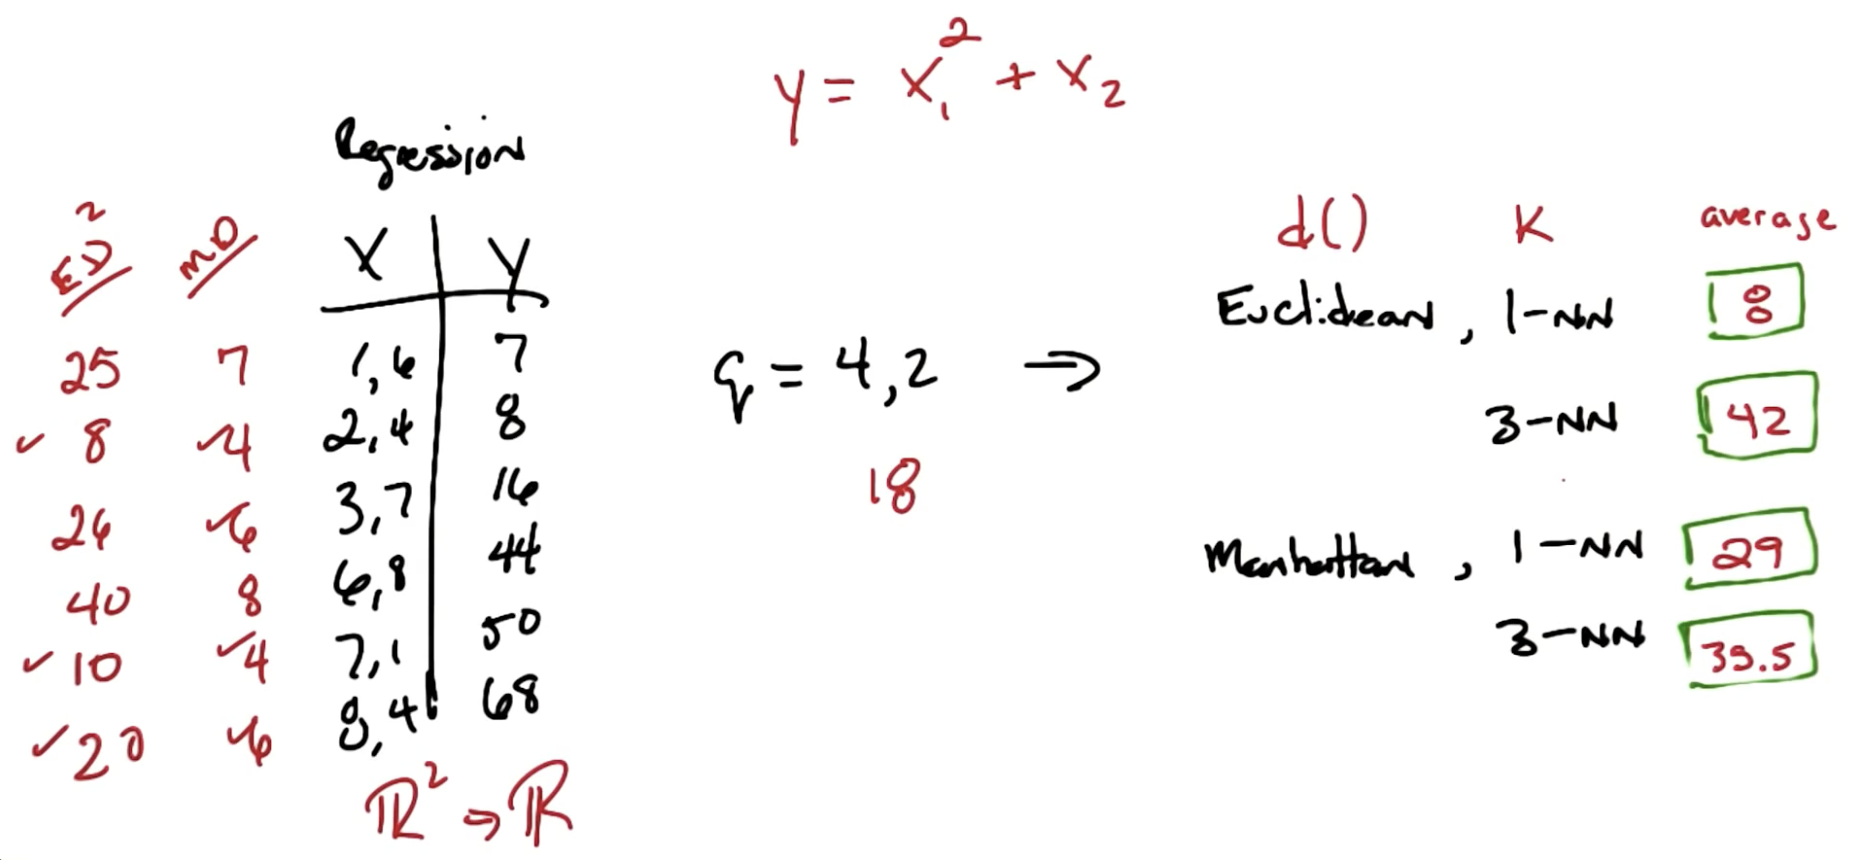 y = x₁² + x₂
Regression
ED² MD X Y
25 7 1,6 7
✓ 8 ✓4 2,4 8
26 ✓6 3,7 16
40 8 6,8 44
✓ 10 ✓4 7,1 50
✓ 20 ✓6 8,4 68
ℝ² → ℝ
q = 4,2 ⇒
18
d() K average
Euclidean, 1-NN 8
3-NN 42
Manhattan, 1-NN 29
3-NN 35.5